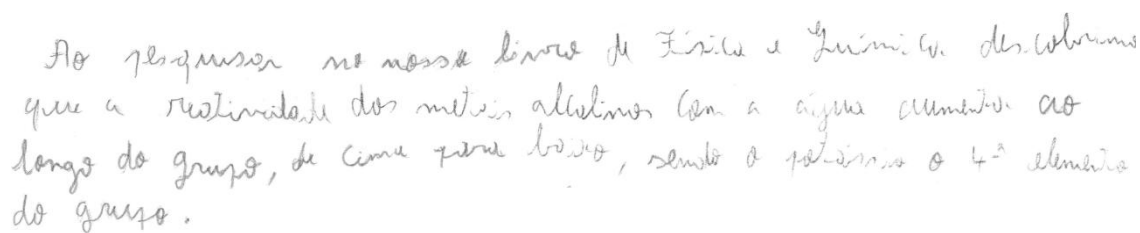 Ao pesquisar no nosso livro de Física e Química descobrimos
que a reatividade dos metais alcalinos com a água aumenta ao
longo do grupo, de cima para baixo, sendo o potássio o 4º elemento
do grupo.